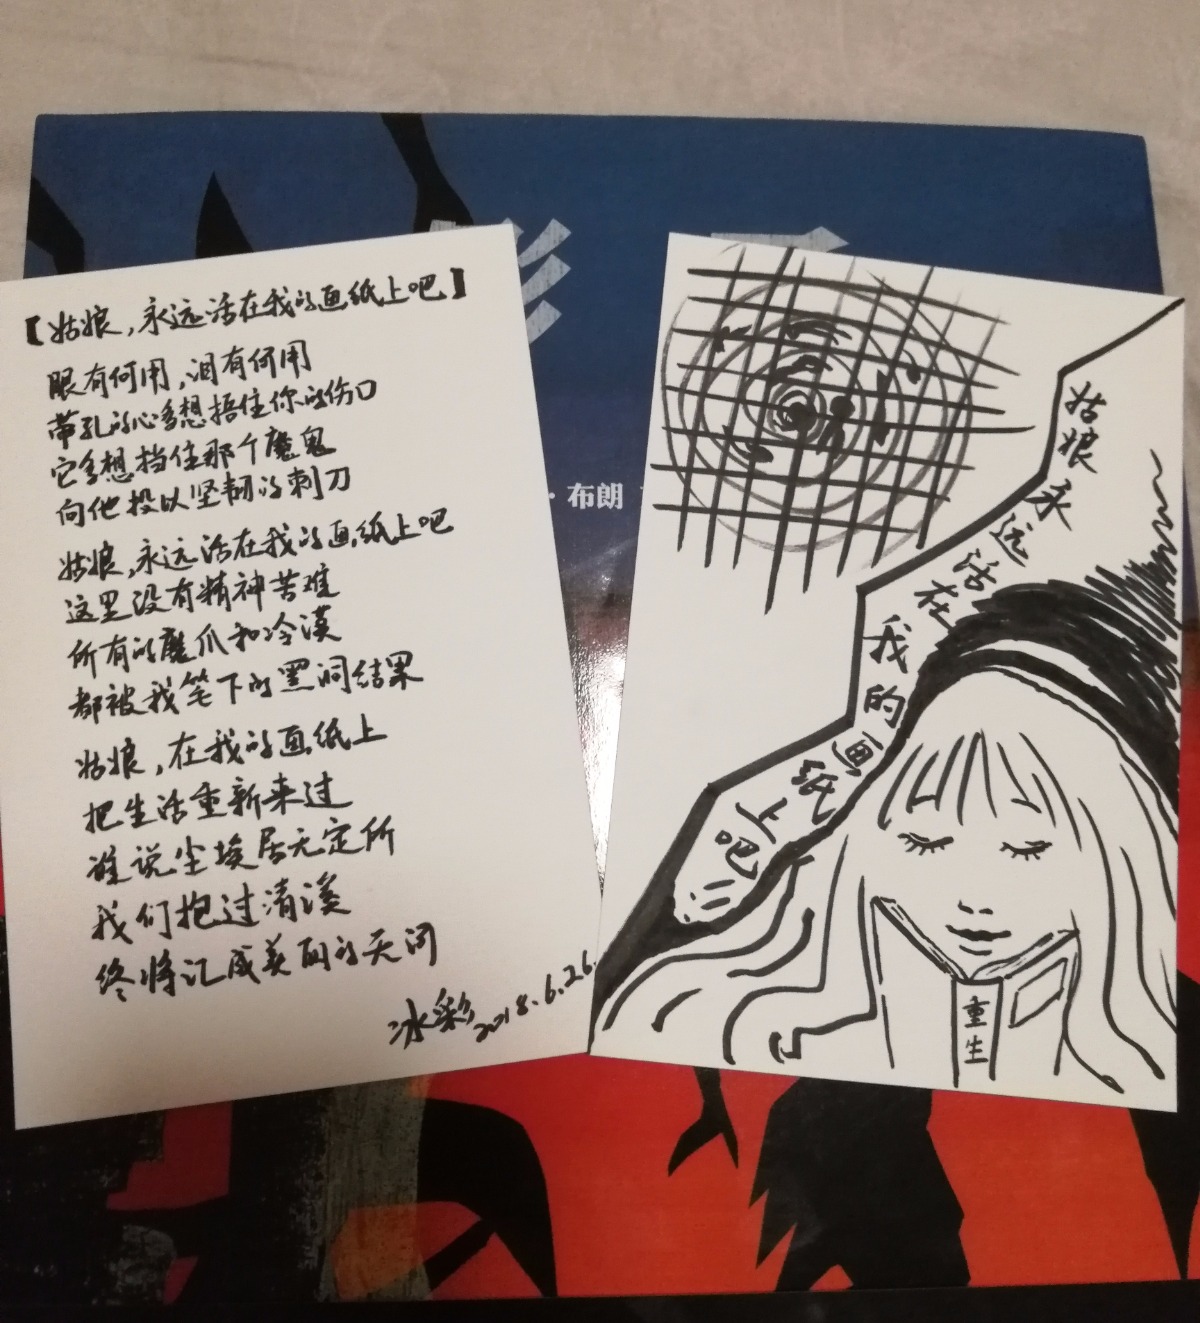 【姑娘，永远活在我的画纸上吧】
眼有何用，泪有何用
带孔的心多想捂住你的伤口
它多想挡住那个魔鬼
向他投以坚韧的刺刀
姑娘，永远活在我的画纸上吧
这里没有精神苦难
所有的魔爪和冷漠
都被我笔下的黑洞结果
姑娘，在我的画纸上
把生活重新来过
谁说尘埃居无定所
我们抱过清溪
终将汇成美丽的天河
冰彩 2018.6.26.
影子
·布朗
姑娘永远活在我的画纸上吧
重生